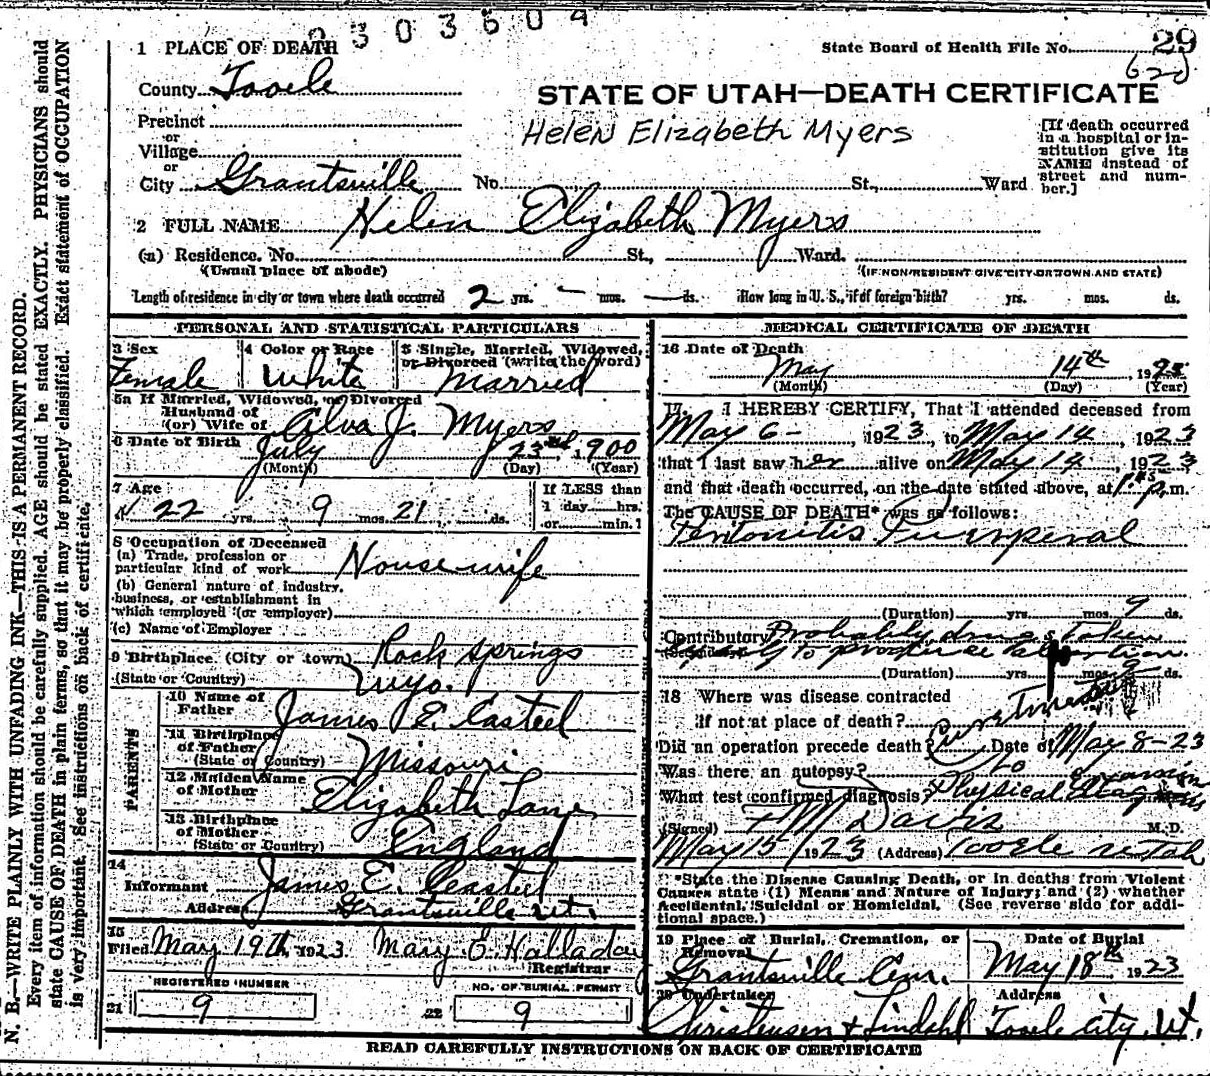 2303604
1 PLACE OF DEATH
State Board of Health File No. 29
620
County Tooele
STATE OF UTAH—DEATH CERTIFICATE
Precinct
Helen Elizabeth Myers
or
Village
or
City Grantsville No. St., Ward
[If death occurred
in a hospital or in-
stitution give its
NAME instead of
street and num-
ber.]
2 FULL NAME Helen Elizabeth Myers
(a) Residence. No. St., Ward.
(Usual place of abode)
(IF NON-RESIDENT GIVE CITY OR TOWN AND STATE)
Length of residence in city or town where death occurred 2 yrs. — mos. — ds. How long in U. S., if of foreign birth? yrs. mos. ds.
PERSONAL AND STATISTICAL PARTICULARS
3 Sex
Female
4 Color or Race
White
5 Single, Married, Widowed,
or Divorced (write the word)
Married
5a If Married, Widowed, or Divorced
Husband of
(or) Wife of Alva J. Myers
6 Date of Birth July 23rd, 1900
(Month) (Day) (Year)
7 Age
22 yrs. 9 mos. 21 ds.
If LESS than
1 day hrs.
or min.?
8 Occupation of Deceased
(a) Trade, profession or
particular kind of work Housewife
(b) General nature of industry,
business, or establishment in
which employed (or employer)
(c) Name of Employer
9 Birthplace (City or town) Rock Springs
(State or Country) Wyo.
PARENTS
10 Name of
Father James E. Casteel
11 Birthplace
of Father
(State or Country) Missouri
12 Maiden Name
of Mother Elizabeth Lane
13 Birthplace
of Mother
(State or Country) England
14
Informant James E. Casteel
Address Grantsville Ut.
15
Filed May 19th, 1923 Mary E. Halladay
Registrar
REGISTERED NUMBER
21 9
NO. OF BURIAL PERMIT
22 9
MEDICAL CERTIFICATE OF DEATH
16 Date of Death
May 14th 1923
(Month) (Day) (Year)
17 I HEREBY CERTIFY, That I attended deceased from
May 6 -, 1923, to May 14, 1923
that I last saw her alive on May 14, 1923
and that death occurred, on the date stated above, at p.m.
The CAUSE OF DEATH* was as follows:
Peritonitis Puerperal
(Duration) yrs. mos. 9 ds.
Contributory Probably drugs taken
(Secondary) to produce abortion.
(Duration) yrs. mos. 9 ds.
18 Where was disease contracted
if not at place of death?
Did an operation precede death? Curetment Date of May 8-23
Was there an autopsy? No
What test confirmed diagnosis? Physical
(Signed) F M Davis M.D.
May 15, 1923 (Address) Tooele Utah
*State the Disease Causing Death, or in deaths from Violent
Causes state (1) Means and Nature of Injury; and (2) whether
Accidental, Suicidal or Homicidal. (See reverse side for addi-
tional space.)
19 Place of Burial, Cremation, or
Removal
Grantsville Cem.
Date of Burial
May 18th 1923
20 Undertaker
Christensen & Lindahl
Address
Tooele City, Ut.
READ CAREFULLY INSTRUCTIONS ON BACK OF CERTIFICATE
N. B.—WRITE PLAINLY WITH UNFADING INK—THIS IS A PERMANENT RECORD.
Every item of information should be carefully supplied. AGE should be stated EXACTLY. PHYSICIANS should
state CAUSE OF DEATH in plain terms, so that it may be properly classified. Exact statement of OCCUPATION
is very important. See instructions on back of certificate.